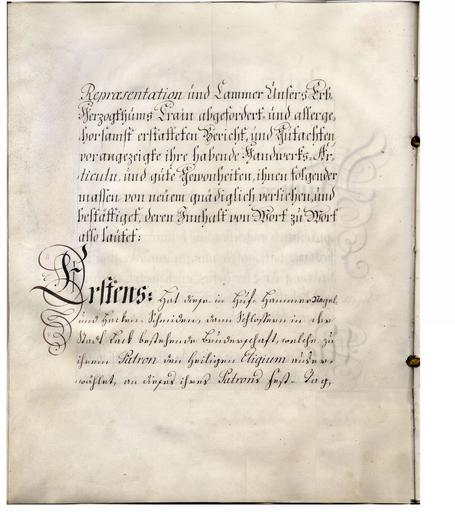 Repræsentation und Cammer Unsers Erb-
Herzogthums Crain abgefordert- und allerge,
horsamst erstatteten Bericht, und Gutachten
vorangezeigte ihre habende Handwercks-Ar,
ticuln, und gute Gewonheiten, ihnen folgender
massen von neuem gnädiglich verliehen, und
bestättiget, deren Innhalt von Wort zu Wort
also lautet:
Erstens: Hat diese in Huf- Hammer Nagel,
und Hacken-Schmiden, dann Schlossern in der
Stadt Lack bestehende Bruderschaft, welche zu
ihrem Patron den Heiligen Eligium auser-
wählet, an dieses ihres Patrons Fest-Tag,